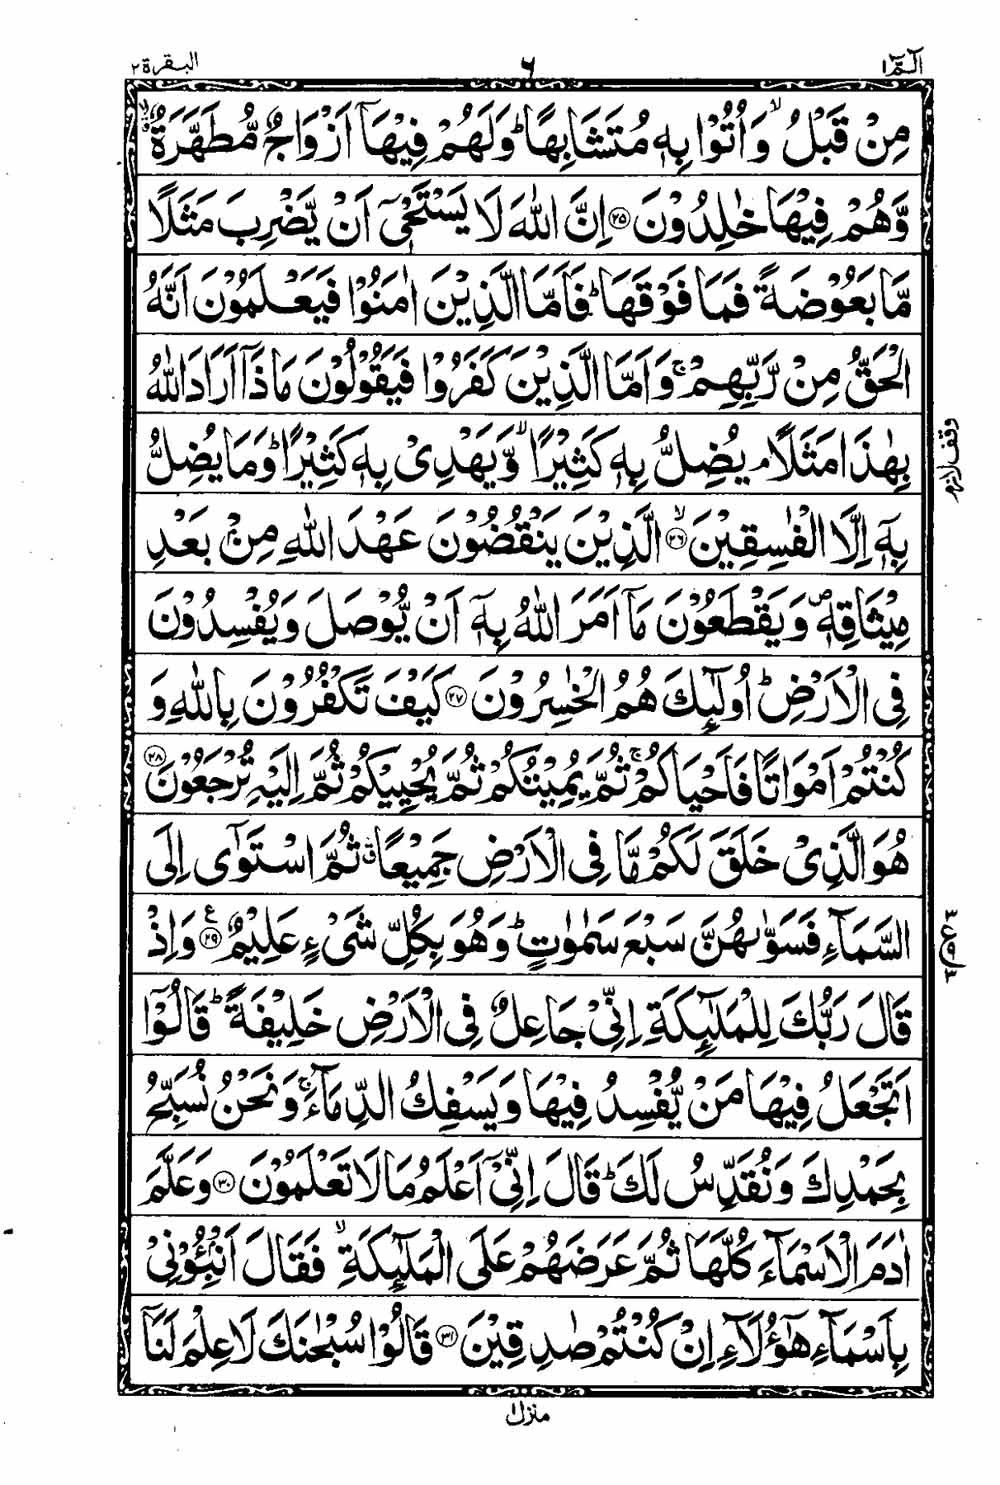 الٓمّٓ ١
٦
البقرة ٢
مِنْ قَبْلُ ۙ وَاُتُوْا بِهٖ مُتَشَابِهًا ؕ وَلَهُمْ فِيْهَاۤ اَزْوَاجٌ مُّطَهَّرَةٌ ۙۗ
وَّهُمْ فِيْهَا خٰلِدُوْنَ ﴿۲۵﴾ اِنَّ اللّٰهَ لَا يَسْتَحْيٖۤ اَنْ يَّضْرِبَ مَثَلًا
مَّا بَعُوْضَةً فَمَا فَوْقَهَا ؕ فَاَمَّا الَّذِيْنَ اٰمَنُوْا فَيَعْلَمُوْنَ اَنَّهُ
الْحَقُّ مِنْ رَّبِّهِمْ ۚ وَاَمَّا الَّذِيْنَ كَفَرُوْا فَيَقُوْلُوْنَ مَاذَاۤ اَرَادَ اللّٰهُ
بِهٰذَا مَثَلًا ۘ يُضِلُّ بِهٖ كَثِيْرًا ۙ وَّيَهْدِيْ بِهٖ كَثِيْرًا ؕ وَمَا يُضِلُّ
وقف لازم
بِهٖۤ اِلَّا الْفٰسِقِيْنَ ۙ﴿۲۶﴾ الَّذِيْنَ يَنْقُضُوْنَ عَهْدَ اللّٰهِ مِنْۢ بَعْدِ
مِيْثَاقِهٖ ۪ وَيَقْطَعُوْنَ مَاۤ اَمَرَ اللّٰهُ بِهٖۤ اَنْ يُّوْصَلَ وَيُفْسِدُوْنَ
فِي الْاَرْضِ ؕ اُولٰٓئِكَ هُمُ الْخٰسِرُوْنَ ﴿۲۷﴾ كَيْفَ تَكْفُرُوْنَ بِاللّٰهِ وَ
كُنْتُمْ اَمْوَاتًا فَاَحْيَاكُمْ ۚ ثُمَّ يُمِيْتُكُمْ ثُمَّ يُحْيِيْكُمْ ثُمَّ اِلَيْهِ تُرْجَعُوْنَ ﴿۲۸﴾
هُوَ الَّذِيْ خَلَقَ لَكُمْ مَّا فِي الْاَرْضِ جَمِيْعًا ۗ ثُمَّ اسْتَوٰۤى اِلَى
السَّمَآءِ فَسَوّٰىهُنَّ سَبْعَ سَمٰوٰتٍ ؕ وَهُوَ بِكُلِّ شَيْءٍ عَلِيْمٌ ﴿۲۹﴾ۧ وَاِذْ
قَالَ رَبُّكَ لِلْمَلٰٓئِكَةِ اِنِّيْ جَاعِلٌ فِي الْاَرْضِ خَلِيْفَةً ؕ قَالُوْۤا
اَتَجْعَلُ فِيْهَا مَنْ يُّفْسِدُ فِيْهَا وَيَسْفِكُ الدِّمَآءَ ۚ وَنَحْنُ نُسَبِّحُ
بِحَمْدِكَ وَنُقَدِّسُ لَكَ ؕ قَالَ اِنِّيْۤ اَعْلَمُ مَا لَا تَعْلَمُوْنَ ﴿۳۰﴾ وَعَلَّمَ
اٰدَمَ الْاَسْمَآءَ كُلَّهَا ثُمَّ عَرَضَهُمْ عَلَى الْمَلٰٓئِكَةِ ۙ فَقَالَ اَنْۢبِـُٔوْنِيْ
بِاَسْمَآءِ هٰۤؤُلَآءِ اِنْ كُنْتُمْ صٰدِقِيْنَ ﴿۳۱﴾ قَالُوْا سُبْحٰنَكَ لَا عِلْمَ لَنَاۤ
منزل ١